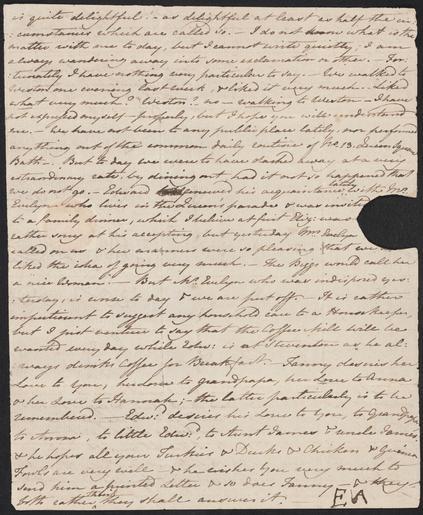 is quite delightful: - as delightful at least as half the cir:
:cumstances which are called so. - I do not know what is the
matter with me to day, but I cannot write quietly; I am
always wandering away into some exclamation or other. For:
:tunately I have nothing very particular to say. - We walked to
Weston one evening last week, & liked it very much. - Liked
what very much? Weston? no - walking to Weston - I have
not expressed myself properly, but I hope you will understand
me. - We have not been to any public place lately, nor performed
anything out of the common daily routine of No. 13. Queen Square
Bath. - But to day we were to have dashed away at a very
extraordinary rate, by dining out, had it not so happened that
we do not go. - Edward renewed his acquaintance lately with Mr.
Evelyn who lives in the Queen's parade & was invited
to a family dinner, which I believe at first Eliz: was
rather sorry at his accepting, but yesterday Mrs. Evelyn
called on us & her manners were so pleasing that we
liked the idea of going very much. - The Biggs would call her
a nice Woman. - But Mr. Evelyn who was indisposed yes:
:terday, is worse to day & we are put off. - It is rather
impertinent to suggest any household care to a Housekeeper,
but I just venture to say that the Coffee Mill will be
wanted every day while Edw: is at Steventon as he al:
:ways drinks Coffee for Breakfast. - Fanny desires her
Love to You, her Love to grandpapa, her Love to Anna
& her Love to Hannah; - the latter particularly is to be
remembered. - Edwd: desires his Love to You, to Grandpapa,
to Anna, to little Edwd., to Aunt James & Uncle James,
& he hopes all your Turkies & Ducks & Chicken & Guinea
Fowls are very well - & he wishes You very much to
send him a printed Letter & so does Fanny - & they
both rather think they shall answer it.
EA